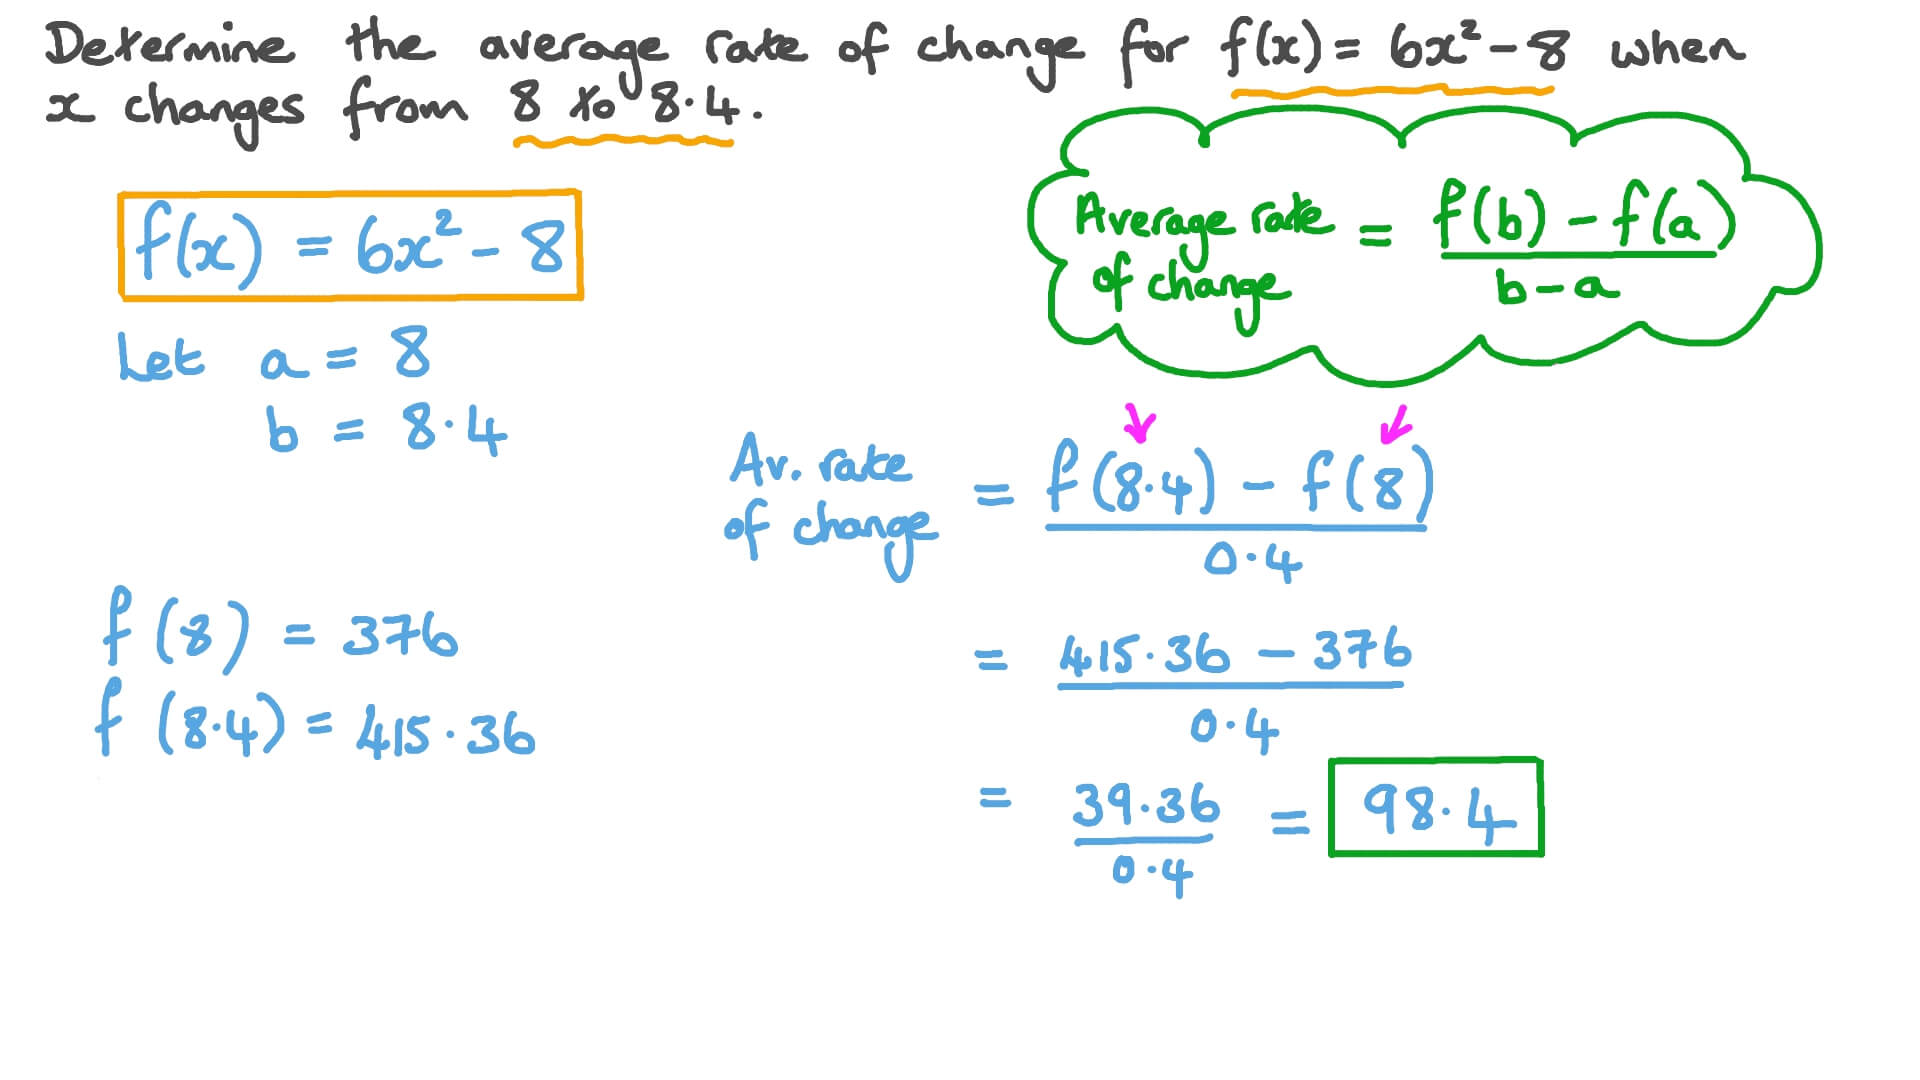 Determine the average rate of change for f(x) = 6x² - 8 when
x changes from 8 to 8.4.
f(x) = 6x² - 8
Let a = 8
b = 8.4
Average rate of change = f(b) - f(a) / b - a
Av. rate of change = f(8.4) - f(8) / 0.4
f(8) = 376
f(8.4) = 415.36
= 415.36 - 376 / 0.4
= 39.36 / 0.4 = 98.4